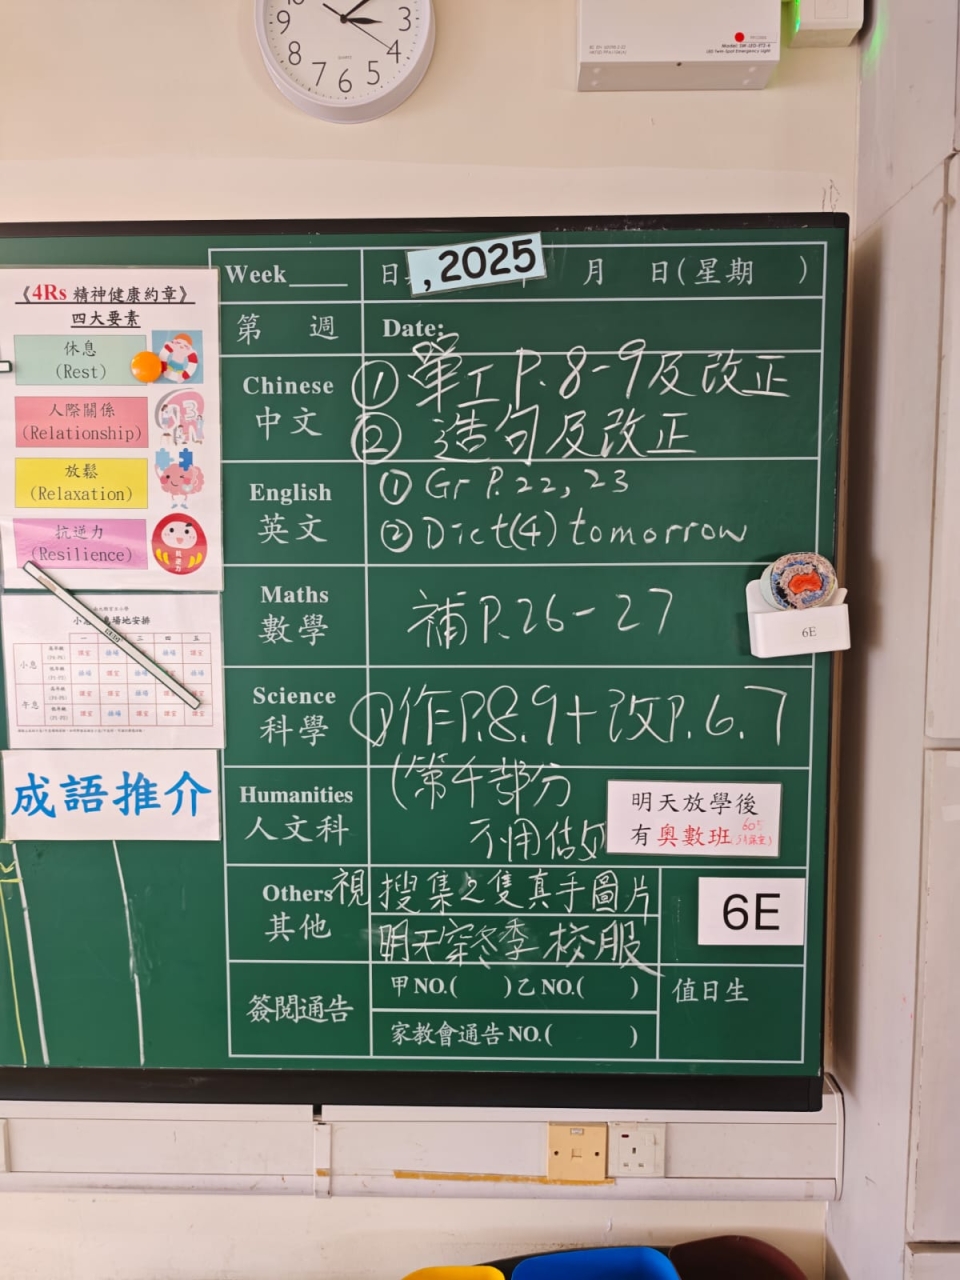 3
4
5
6
7
8
9
Model: SW-LED-3T2-A
LED Twin Spot Emergency Light
Week____
日 , 2025 月 日(星期 )
第 週
Date:
Chinese
中文
① 單工 P. 8-9及改正
② 造句及改正
English
英文
① Gr P. 22, 23
② Dict(4) tomorrow
Maths
數學
補P.26-27
6E
Science
科學
①作P.8.9+改P.6.7
Humanities
人文科
(第千部分
不用做)
明天放學後
有奧數班
605
Others
其他
視
搜集2隻真手圖片
明天穿冬季校服
6E
簽閱通告
甲NO.( )乙NO.( )
家教會通告NO.( )
值日生
《4Rs 精神健康約章》
四大要素
休息
(Rest)
人際關係
(Relationship)
放鬆
(Relaxation)
抗逆力
(Resilience)
抗逆力
場地安排
一 二 四 五
小息
午息
成語推介